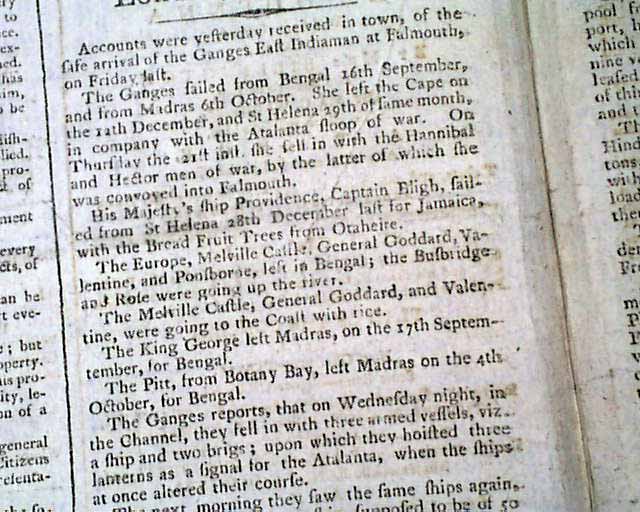 Accounts were yesterday received in town, of the
safe arrival of the Ganges East Indiaman at Falmouth,
on Friday last.
The Ganges sailed from Bengal 16th September,
and from Madras 6th October. She left the Cape on
the 12th December, and St Helena 29th of same month,
in company with the Atalanta sloop of war. On
Thursday the 21st inst. she fell in with the Hannibal
and Hector men of war, by the latter of which she
was convoyed into Falmouth.
His Majesty's ship Providence, Captain Bligh, sail-
ed from St Helena 28th December last for Jamaica,
with the Bread Fruit Trees from Otaheite.
The Europe, Melville Castle, General Goddard, Va-
lentine, and Ponsborne, left in Bengal; the Busbridge
and Rose were going up the river.
The Melville Castle, General Goddard, and Valen-
tine, were going to the Coast with rice.
The King George left Madras, on the 17th Septem-
tember, for Bengal.
The Pitt, from Botany Bay, left Madras on the 4th
October, for Bengal.
The Ganges reports, that on Wednesday night, in
the Channel, they fell in with three armed vessels, viz.
a ship and two brigs; upon which they hoisted three
lanterns as a signal for the Atalanta, when the ships
at once altered their course.
next morning they saw the same ships again,
supposed to be of 50
to
ex-
has
be
lied.
pro-
of
ment
every
of
an be
eve-
; but
operty.
his pro-
ity, le-
on of a
general
Citizens
resenta-
pool
port,
which
nine
of
and
Th
Hind
tons
with
load
the